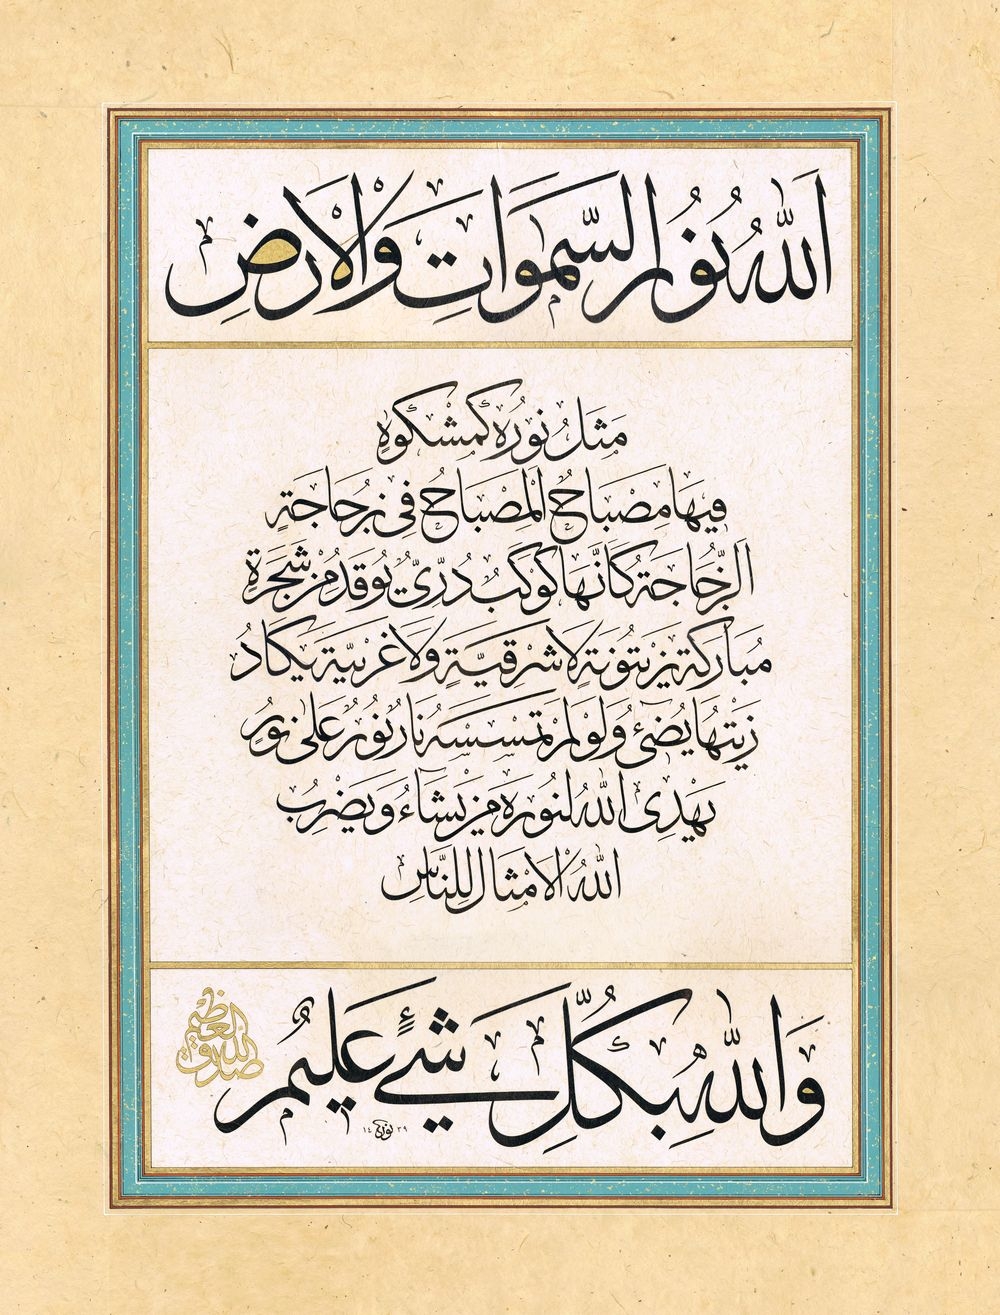 اَللّٰهُ نُورُ السَّمٰوَاتِ وَالْاَرْضِ
مَثَلُ نُورِه۪ كَمِشْكٰوةٍ
ف۪يهَا مِصْبَاحٌ اَلْمِصْبَاحُ ف۪ى زُجَاجَةٍ
اَلزُّجَاجَةُ كَاَنَّهَا كَوْكَبٌ دُرِّىٌّ يُوقَدُ مِنْ شَجَرَةٍ
مُبَارَكَةٍ زَيْتُونَةٍ لَا شَرْقِيَّةٍ وَلَا غَرْبِيَّةٍ يَكَادُ
زَيْتُهَا يُض۪ىٓءُ وَلَوْ لَمْ تَمْسَسْهُ نَارٌ نُورٌ عَلٰى نُورٍ
يَهْدِى اللّٰهُ لِنُورِه۪ مَنْ يَشَٓاءُ وَيَضْرِبُ
اللّٰهُ الْاَمْثَالَ لِلنَّاسِ
وَاللّٰهُ بِكُلِّ شَىْءٍ عَل۪يمٌ
صدق الله العظيم